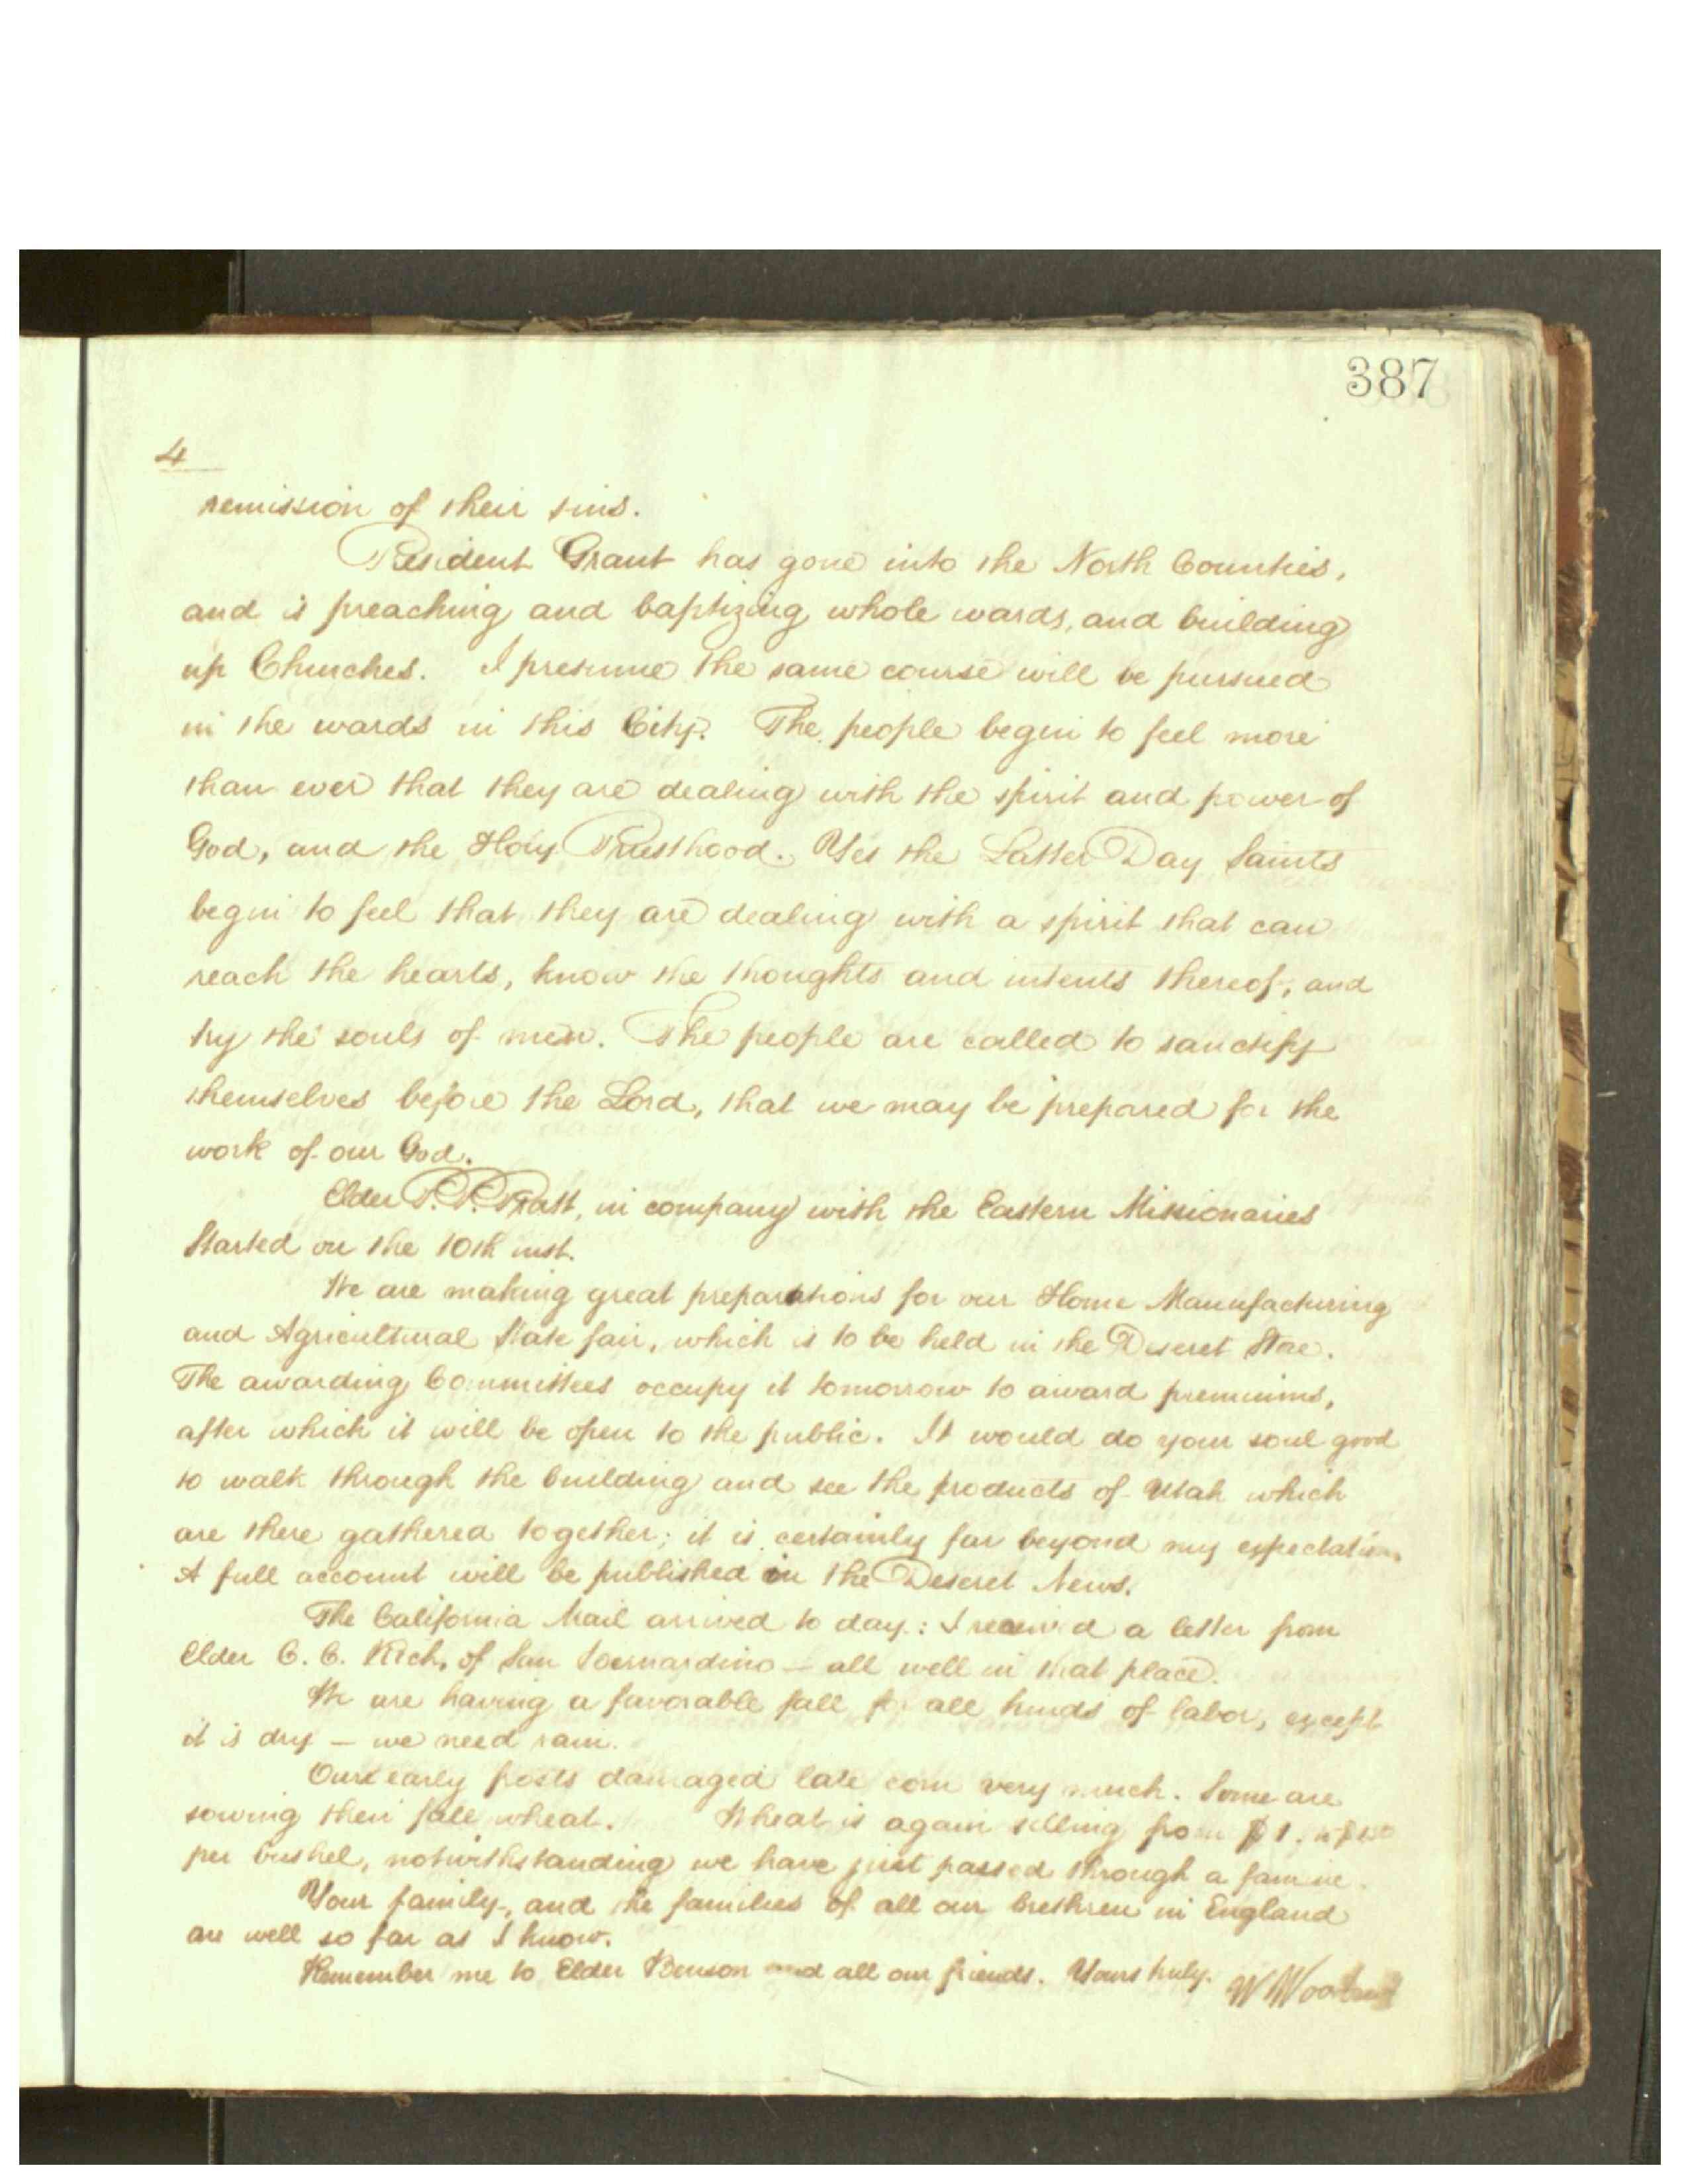 387
4
remission of their sins.
President Grant has gone into the North Counties,
and is preaching and baptizing whole wards, and building
up Churches. I presume the same course will be pursued
in the wards in this City. The people begin to feel more
than ever that they are dealing with the spirit and power of
God, and the Holy Priesthood. Yes the Latter Day Saints
begin to feel that they are dealing with a spirit that can
reach the hearts, know the thoughts and intents thereof, and
try the souls of men. The people are called to sanctify
themselves before the Lord, that we may be prepared for the
work of our God.
Elder P. P. Pratt, in company with the Eastern Missionaries
Started on the 10th inst.
We are making great preparations for our Home Manufacturing
and Agricultural State fair, which is to be held in the Deseret Store.
The awarding Committees occupy it tomorrow to award premiums,
after which it will be open to the public. It would do your soul good
to walk through the building and see the products of Utah which
are there gathered together; it is certainly far beyond my expectation.
A full account will be published in the Deseret News.
The California Mail arrived to day: I received a letter from
Elder C. C. Rich, of San Bernardino — all well in that place.
We are having a favorable fall for all kinds of labor, except
it is dry — we need rain.
Our early frosts damaged late corn very much. Some are
sowing their fall wheat. Wheat is again selling from $1. to
per bushel, notwithstanding we have just passed through a famine.
Your family, and the families of all our brethren in England
are well so far as I know.
Remember me to Elder Benson and all our friends. Yours truly. W Woodruff